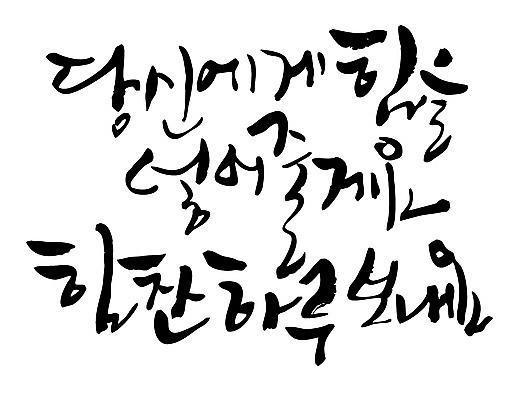 당신에게 힘을
넣어줄게요
힘찬하루보내요